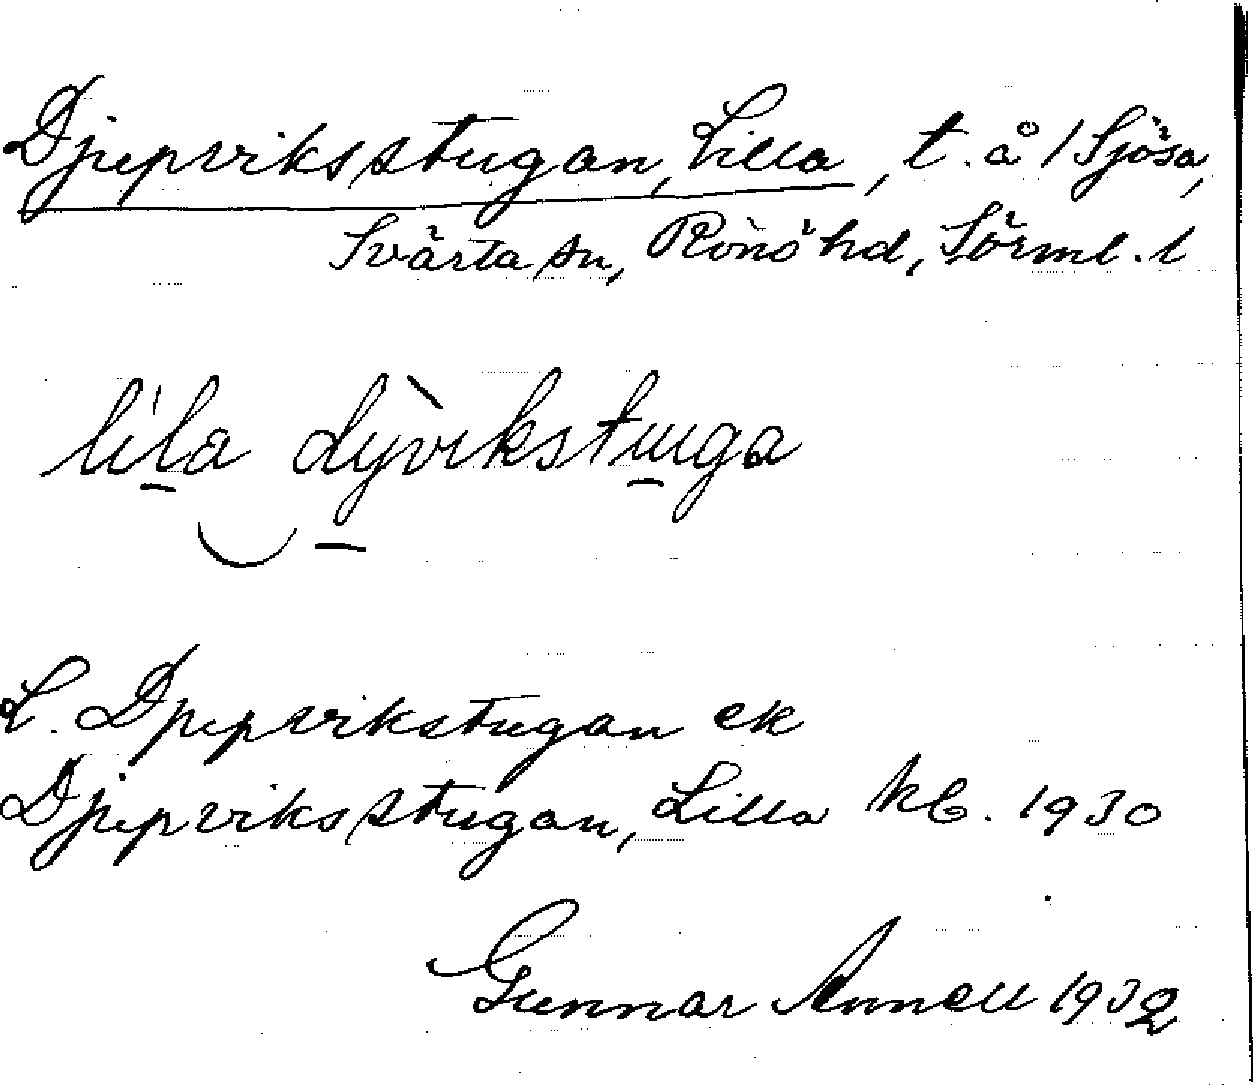 Djupviksstugan, Lilla, t. å /Sjösa,
Svärta sn, Rönö hd, Sörml. l
lila dyvikstuga
L. Djupvikstugan ek
Djupviksstugan, Lilla kb. 1930
Gunnar Annell 1932